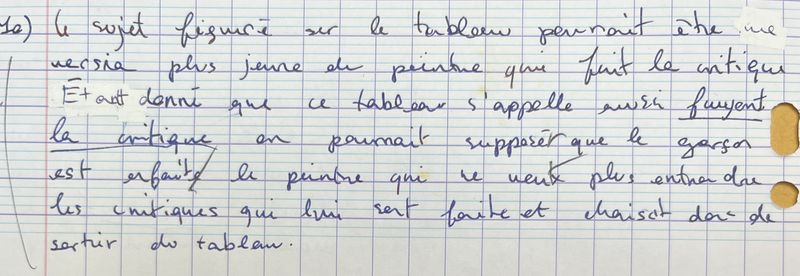 1a) Le sujet figuré sur le tableau pourrait être une
version plus jeune du peintre qui fuit la critique
Étant donné que ce tableau s'appelle aussi fuyant
la critique on pourrait supposer que le garson
est enfaite le peintre qui ne veut plus entendre
les critiques qui lui sont faite et choisit donc de
sortir du tableau.